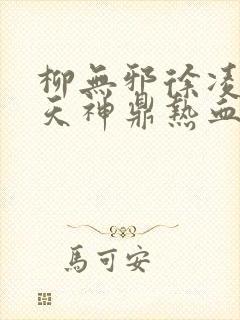 柳無邪徐凌
天神鼎熱血
馬可安